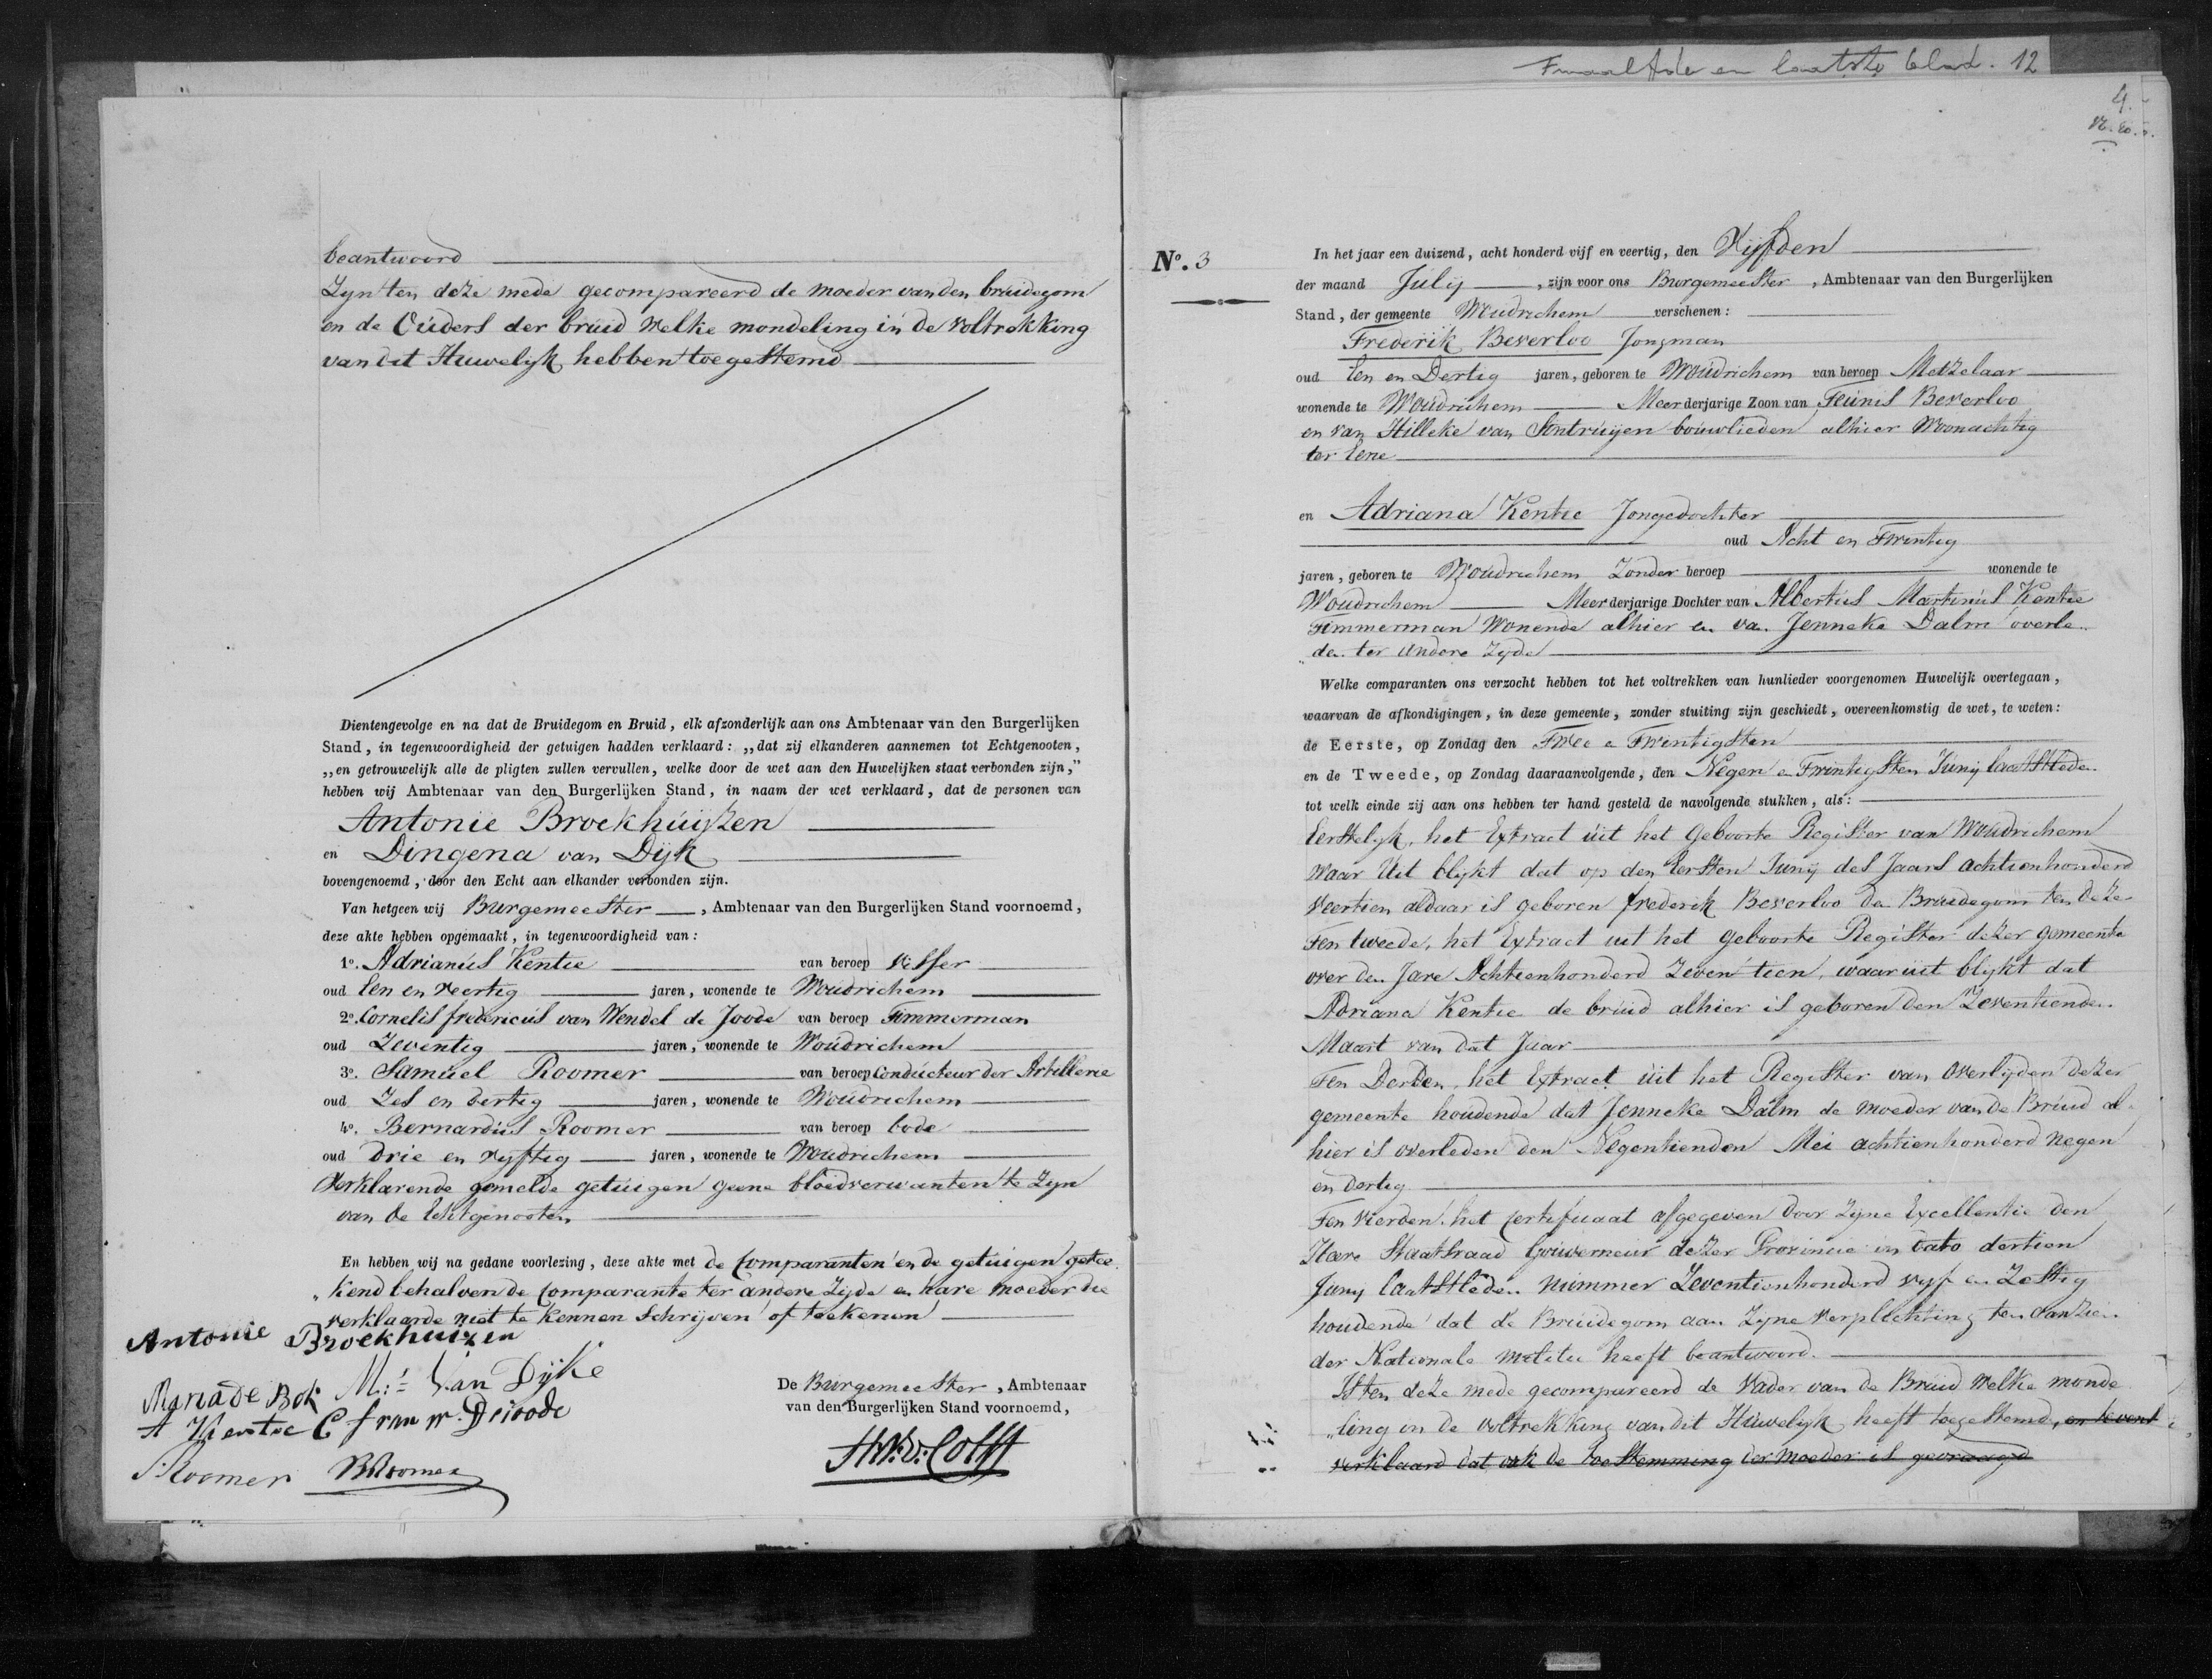 beantwoord
Zyn ten deze mede gecompareerd de moeder van den bruidegom
en de Ouders der bruid welke mondeling in de voltrekking
van dit Huwelyk hebben toegestemd
Dientengevolge en na dat de Bruidegom en Bruid, elk afzonderlijk aan ons Ambtenaar van den Burgerlijken
Stand, in tegenwoordigheid der getuigen hadden verklaard: „dat zij elkanderen aannemen tot Echtgenooten,
„en getrouwelijk alle de pligten zullen vervullen, welke door de wet aan den Huwelijken staat verbonden zijn,”
hebben wij Ambtenaar van den Burgerlijken Stand, in naam der wet verklaard, dat de personen van
Antonie Broekhúijzen
en Dingena van Dijk
bovengenoemd, door den Echt aan elkander verbonden zijn.
Van hetgeen wij Burgemeester, Ambtenaar van den Burgerlijken Stand voornoemd,
deze akte hebben opgemaakt, in tegenwoordigheid van:
1º. Adrianús Kentie van beroep visser
oud Een en veertig jaren, wonende te Woudrichem
2º. Cornelis fredericús van Wendel de Joode van beroep Timmerman
oud Zeventig jaren, wonende te Woúdrichem
3º. Samúel Roomer van beroep Condúcteur der Artillerie
oud Zes en dertig jaren, wonende te Woúdrichem
4º. Bernardús Roomer van beroep bode
oud Drie en vyftig jaren, wonende te Woudrichem
Verklarende gemelde getúigen geene bloedverwanten te Zyn
van de Echtgenooten
En hebben wij na gedane voorlezing, deze akte met de Comparanten en de getuigen getee
„kend behalven de Comparante ter andere Zijde en hare moeder die
verklaarde niet te kennen Schrijven of teekenen
Antonie Broekhuizen
Maria de Bok M: Van Dijke
A Kentie C f van w. De joode
S Roomer B Roomer
De Burgemeester, Ambtenaar
van den Burgerlijken Stand voornoemd,
en laatste blad. 12
4.
Nº. 3
In het jaar een duizend, acht honderd vijf en veertig, den Vijfden
der maand Julij, zijn voor ons Burgemeester, Ambtenaar van den Burgerlijken
Stand, der gemeente Woudrichem verschenen:
Frederik Beverloo Jongman
oud Een en Dertig jaren, geboren te Woúdrichem van beroep Metzelaar
wonende te Woudrichem Meerderjarige Zoon van Teunis Beverloo
en van Hilleke van Sontruijen bouwlieden alhier Woonachtig
ter Eene
en Adriana Kentie Jongedochter
oud Acht en Twintig
jaren, geboren te Woudrichem Zonder beroep wonende te
Woudrichem Meerderjarige Dochter van Albertus Martinus Kentie
Timmerman Wonende alhier en van Jenneke Dalm overle„
„den ter andere Zyde
Welke comparanten ons verzocht hebben tot het voltrekken van hunlieder voorgenomen Huwelijk overtegaan,
waarvan de afkondigingen, in deze gemeente, zonder stuiting zijn geschiedt, overeenkomstig de wet, te weten:
de Eerste, op Zondag den Twee en Twintigsten
en de Tweede, op Zondag daaraanvolgende, den Negen en Twintigsten Junij laatstleden
tot welk einde zij aan ons hebben ter hand gesteld de navolgende stukken, als:
Eerstelyk, het Extract úit het Geboorte Register van Woúdrichem
waar Uit blykt dat op den Eersten Junij des Jaars achtienhonderd
Veertien aldaar is geboren frederik Beverloo de Bruidegom ten deze
Ten tweede, het Extract uit het geboorte Register dezer gemeente
over den Jare Achtienhonderd Zeven tien, waar uit blykt dat
Adriana Kentie de brúid alhier is geboren den Zeventienden
Maart van dat Jaar
Ten Derden, het Extract úit het Register van Overlijden dezer
gemeente houdende dat Jenneke Dalm de moeder van de Bruid al
hier is overleden den Negentienden Mei achtienhonderd negen
en dertig
Ten Vierden, het Certificaat afgegeven door Zyne Excellentie den
Heere Staatsraad Gouverneur dezer Provincie in dato dertien
Juny laatstleden nummer Zeventienhonderd vyf en Zestig
houdende dat de Bruidegom aan Zyne Verplichting ten aanzien
der Nationale Militie heeft beantwoord.
Is ten deze mede gecompareerd de Vader van de Bruid welke monde
„ling in de voltrekking van dit Huwelyk heeft toegestemd, en tevens
verklaard dat ook de toestemming der moeder is gevraagd